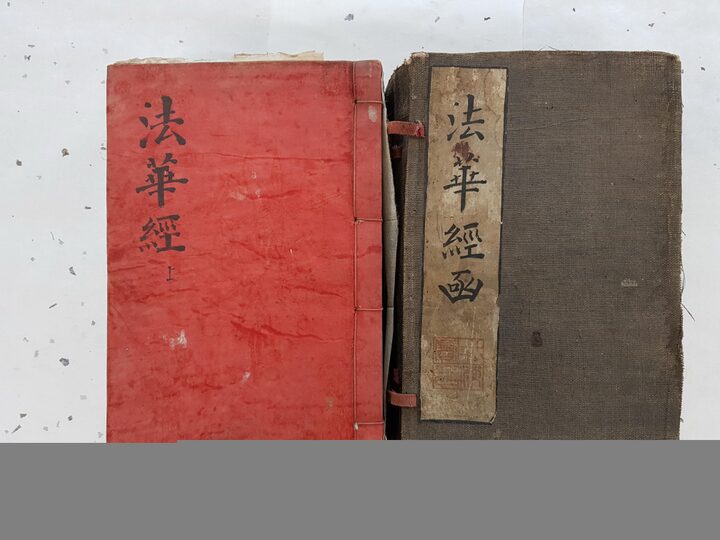 法華經
上
法華經函